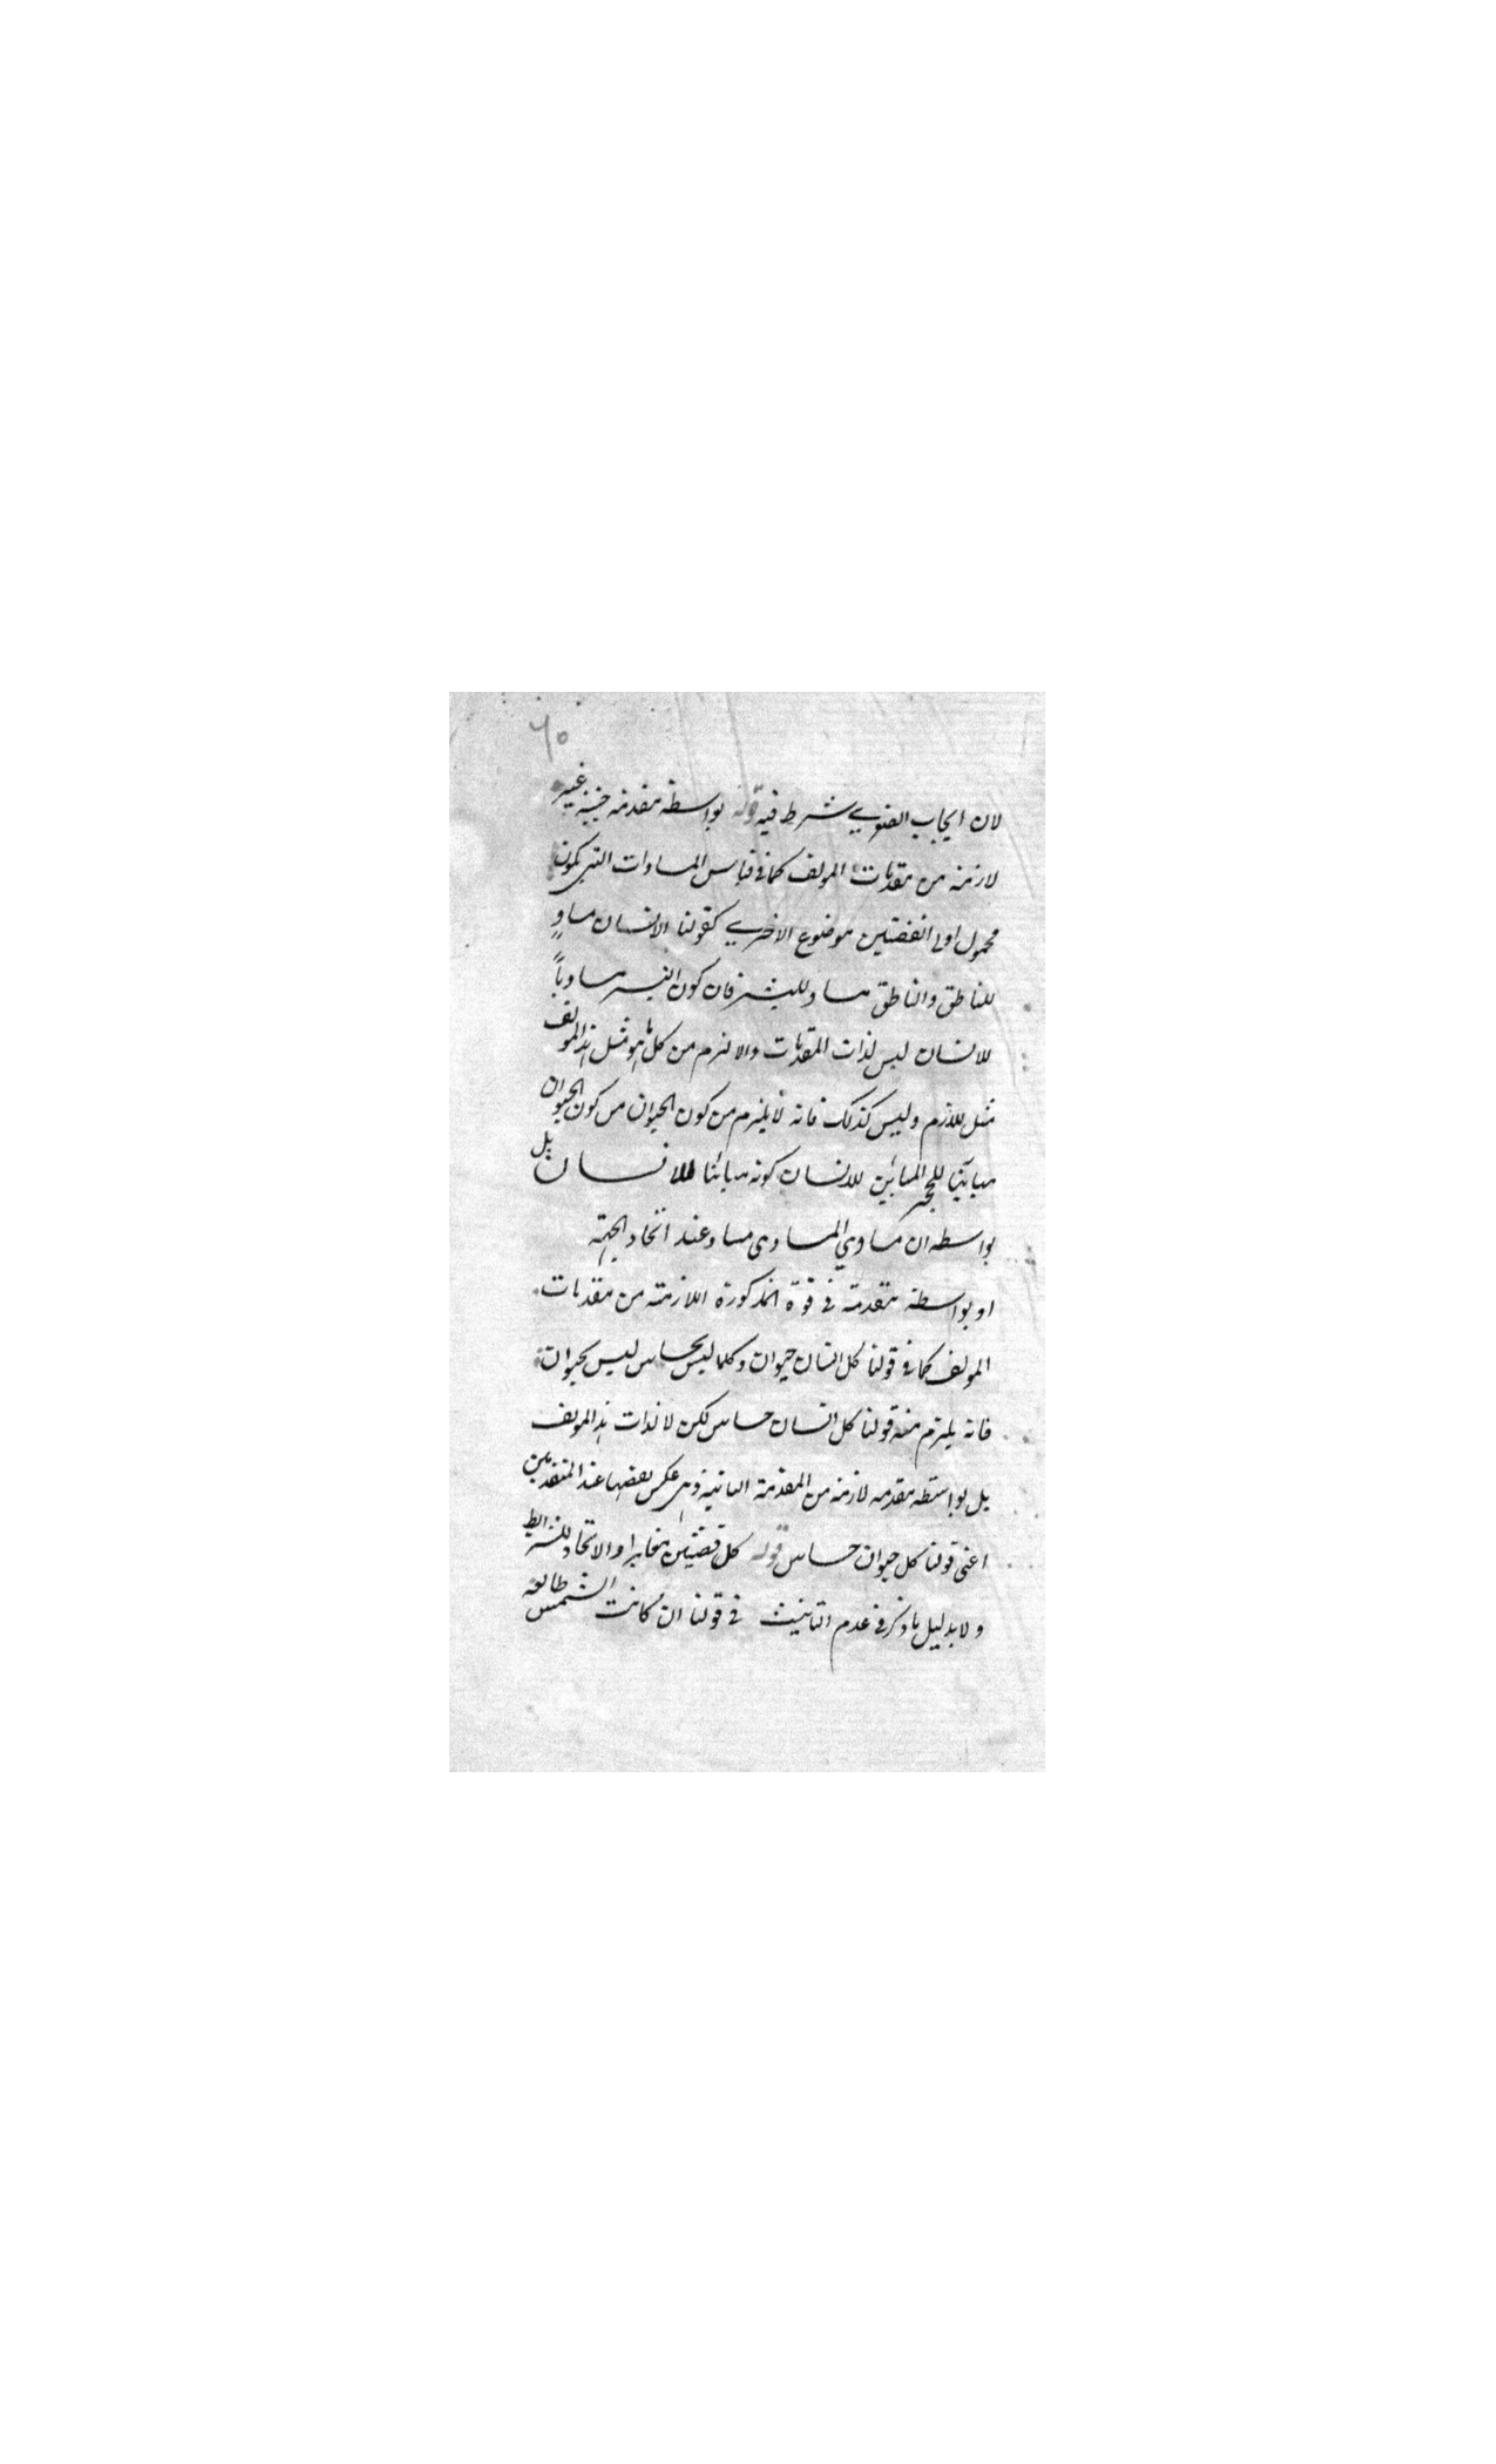 ٦٥
لان ايجاب الصغرى شرط فيه قوله بواسطة مقدمة اجنبية غير
لازمة من مقدمات المولف كما في قياس المساوات التي يكون
محمول اولى القضيتين موضوع الاخرى كقولنا الانسان مساوٍ
للناطق والناطق مساو للبشر فان كون البشر مساوياً
للانسان ليس لذات المقدمات والا لزم من كل ما هو مثل هذا المولف
مثل اللازم وليس كذلك فانه لا يلزم من كون الحيوان من كون الحيوان
مباينا للحجر المباين للانسان كونه مباينا للانسان بل
بواسطة ان مساوي المساوى مساو عند اتحاد الجهة
او بواسطة مقدمة في قوة المذكورة اللازمة من مقدمات
المولف كما في قولنا كل انسان حيوان وكلما ليس بحساس ليس بحيوان
فانه يلزم منه قولنا كل انسان حساس لكن لا لذات هذا المولف
بل بواسطة مقدمة لازمة من المقدمة الثانية وهي عكس نقيضها عند المتقدمين
اعنى قولنا كل حيوان حساس قوله كل قضيتين والاتحاد للشرائط
ولا بدليل ما ذكر في عدم التانيث في قولنا ان كانت الشمس طالعة